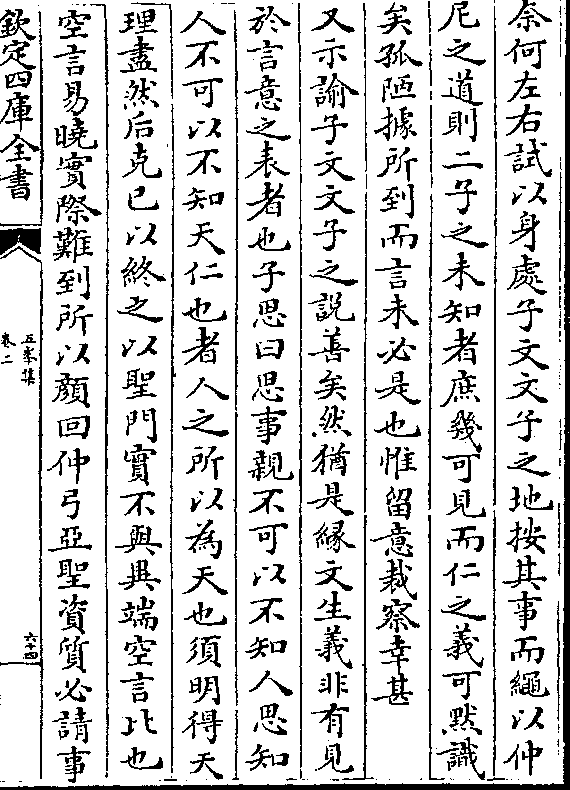 奈何左右試以身處子文文子之地按其事而繩以仲
尼之道則二子之未知者庶幾可見而仁之義可黙識
矣孤陋據所到而言未必是也惟留意裁察幸甚
又示諭子文文子之說善矣然猶是緣文生義非有見
於言意之表者也子思曰思事親不可以不知人思知
人不可以不知天仁也者人之所以為天也須明得天
理盡然后克已以終之以聖門實不與異端空言比也
空言易曉實際難到所以顔回仲弓亞聖資質必請事
欽定四庫全書
五峯集
卷二
六十四